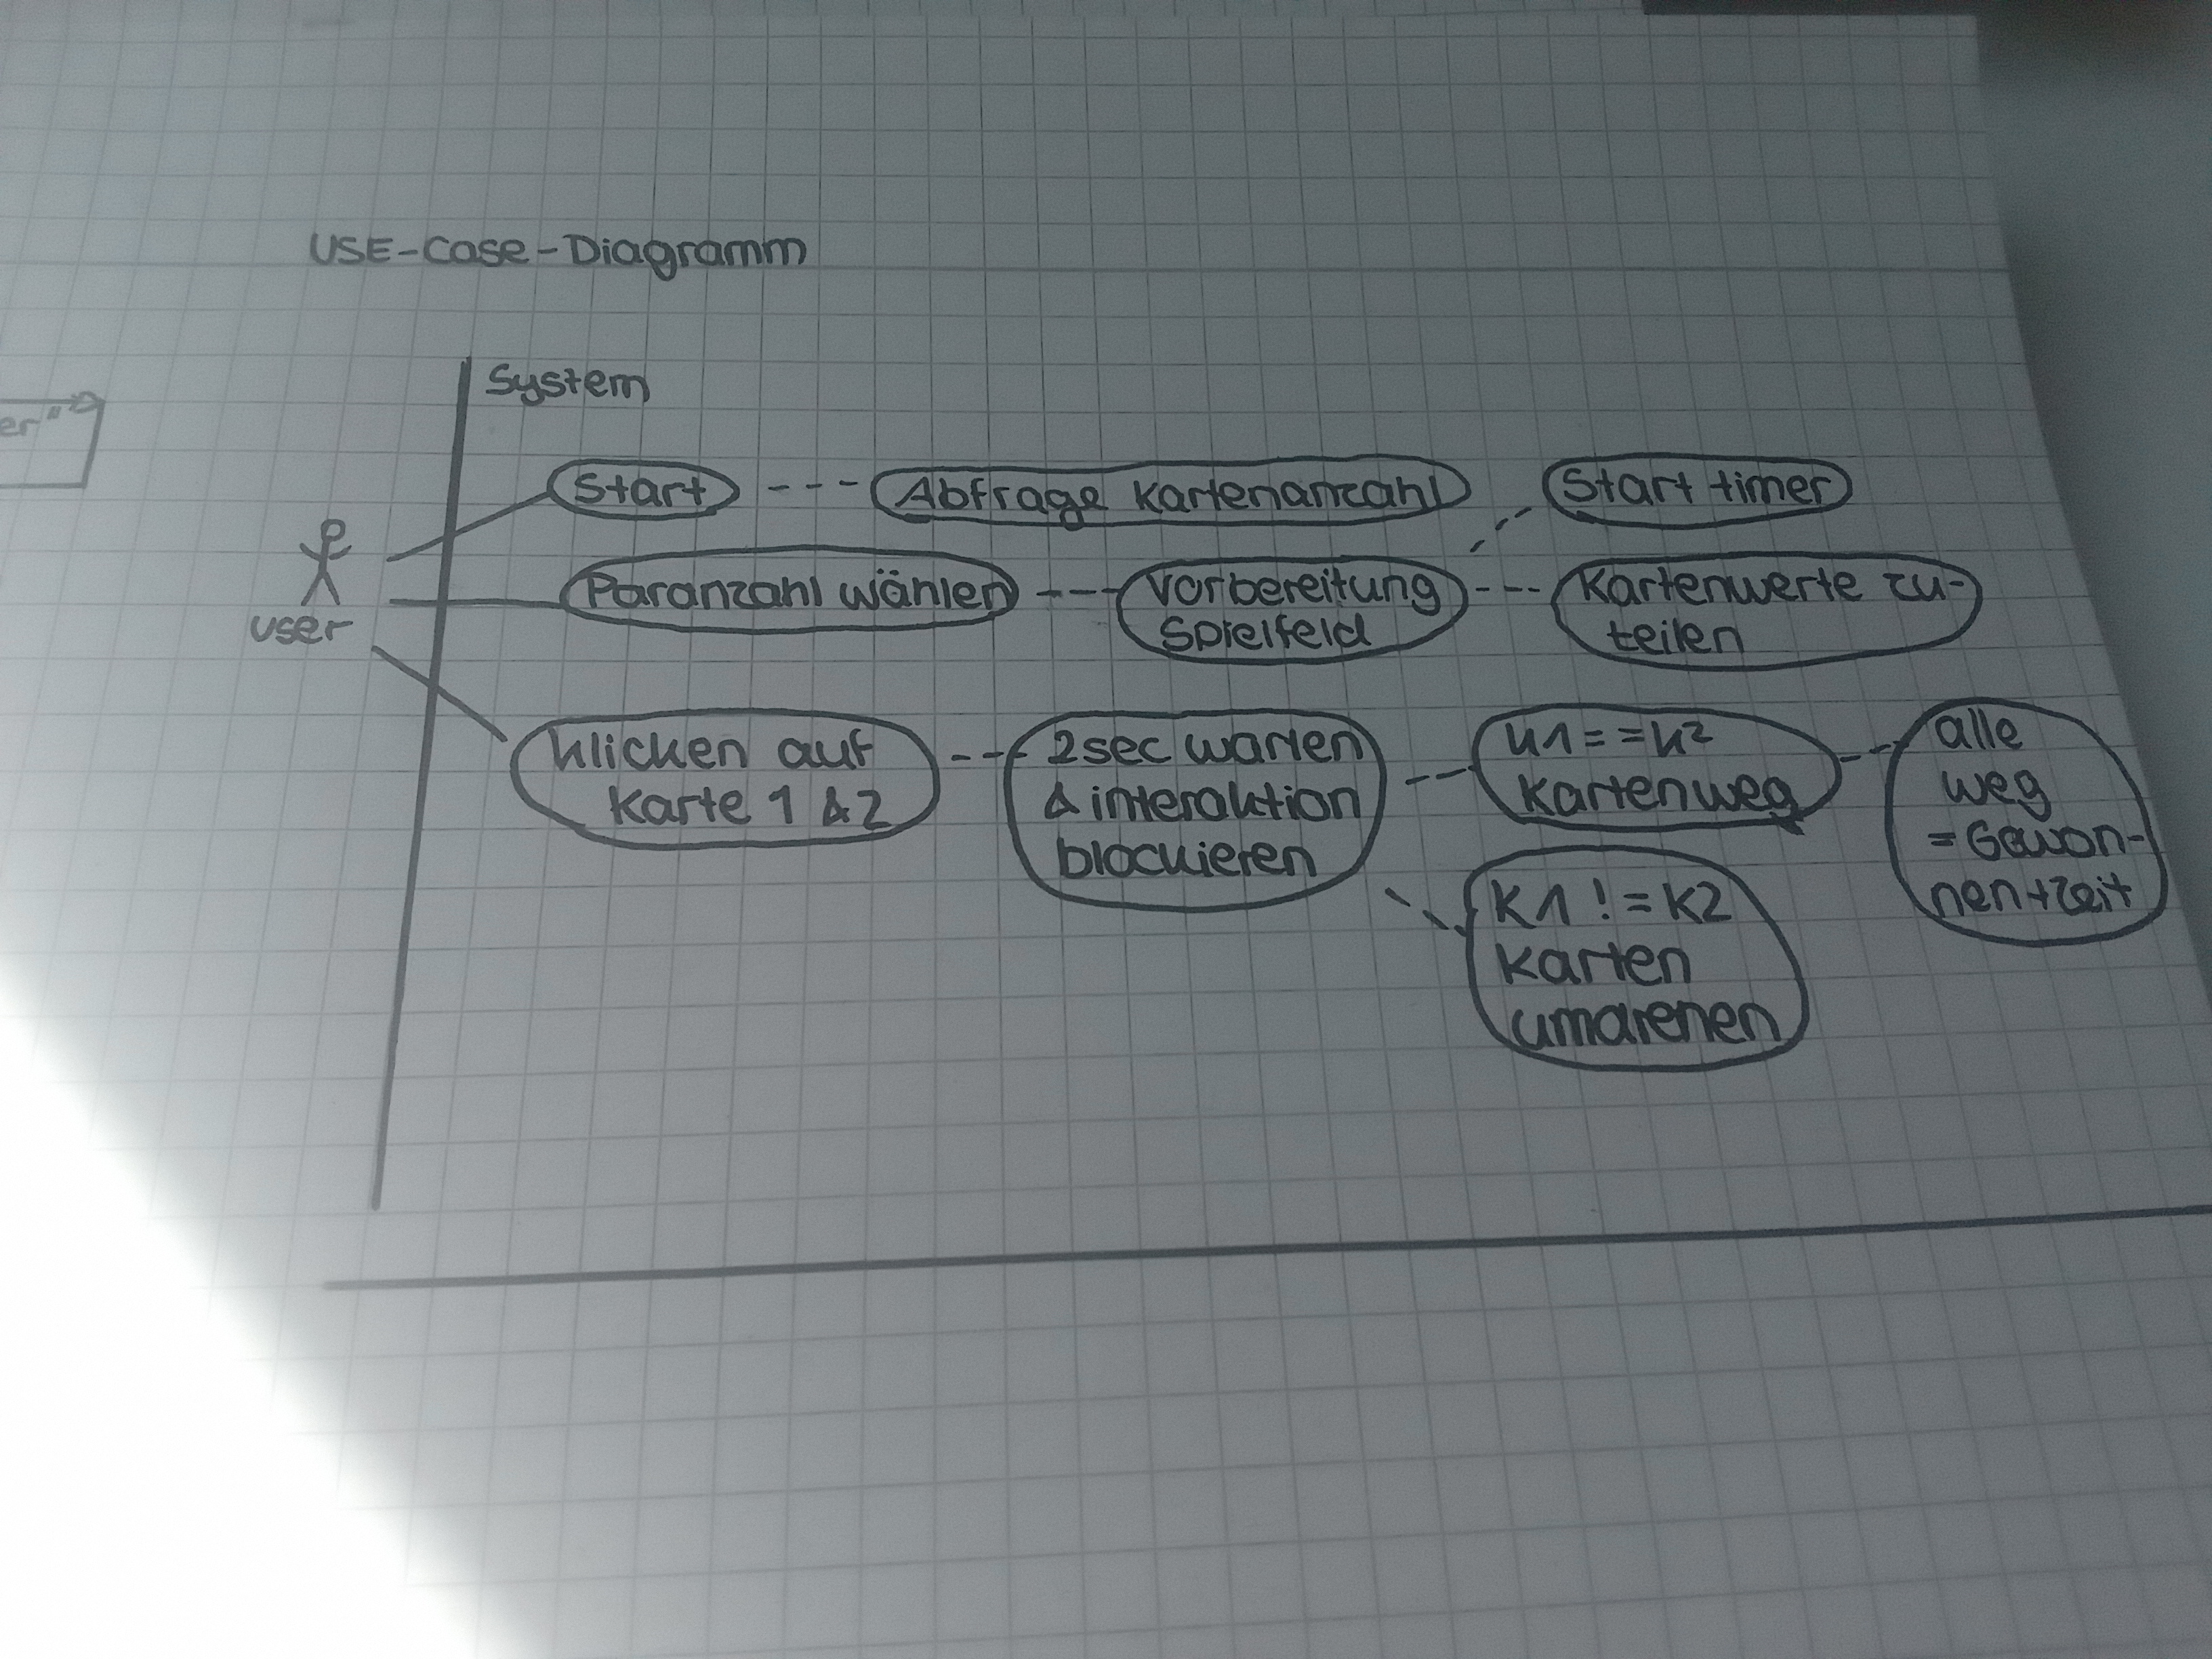 USE-Case-Diagramm
System
er"
Start
Abfrage Kartenanzahl
Start timer
user
Paranzahl wählen
Vorbereitung
Spielfeld
Kartenwerte zu-
teilen
klicken auf
Karte 1 & 2
2sec warten
& interaktion
blockieren
K1==K2
Kartenweg
alle
weg
=Gewon-
nen+Zeit
K1!=K2
Karten
umdrehen